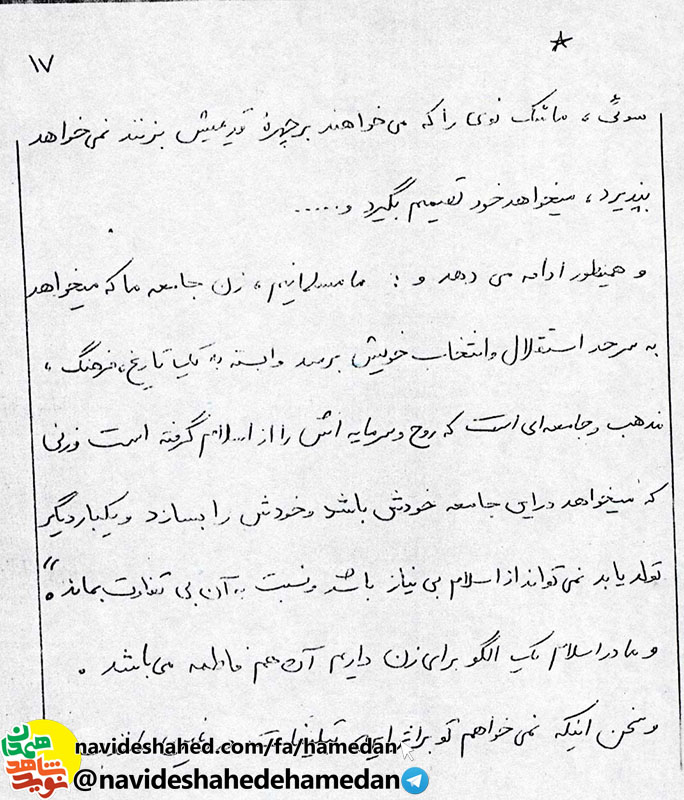 ۱۷
سوئی، ماسک نوی را که می‌خواهند بر چهرۀ قدیمیش بزنند نمی‌خواهد
بپذیرد، میخواهد خود تصمیم بگیرد و.....
و همینطور ادامه می دهد و: ما مسلمانیم، زن جامعه ما که میخواهد
به سرحد استقلال و انتخاب خویش برسد وابسته به یک تاریخ، فرهنگ،
مذهب و جامعه‌ای است که روح و سرمایه اش را از اسلام گرفته است و زنی
که میخواهد در این جامعه خودش باشد و خودش را بسازد و یکبار دیگر
تولد یابد نمی تواند از اسلام بی نیاز باشد و نسبت به آن بی تفاوت بماند.»
و ما در اسلام یک الگو برای زن داریم آن هم فاطمه می باشد.
و سخن اینکه نمی خواهم تو بر اثر
navideshahed.com/fa/hamedan
@navideshahedehamedan
نوید شاهد همدان